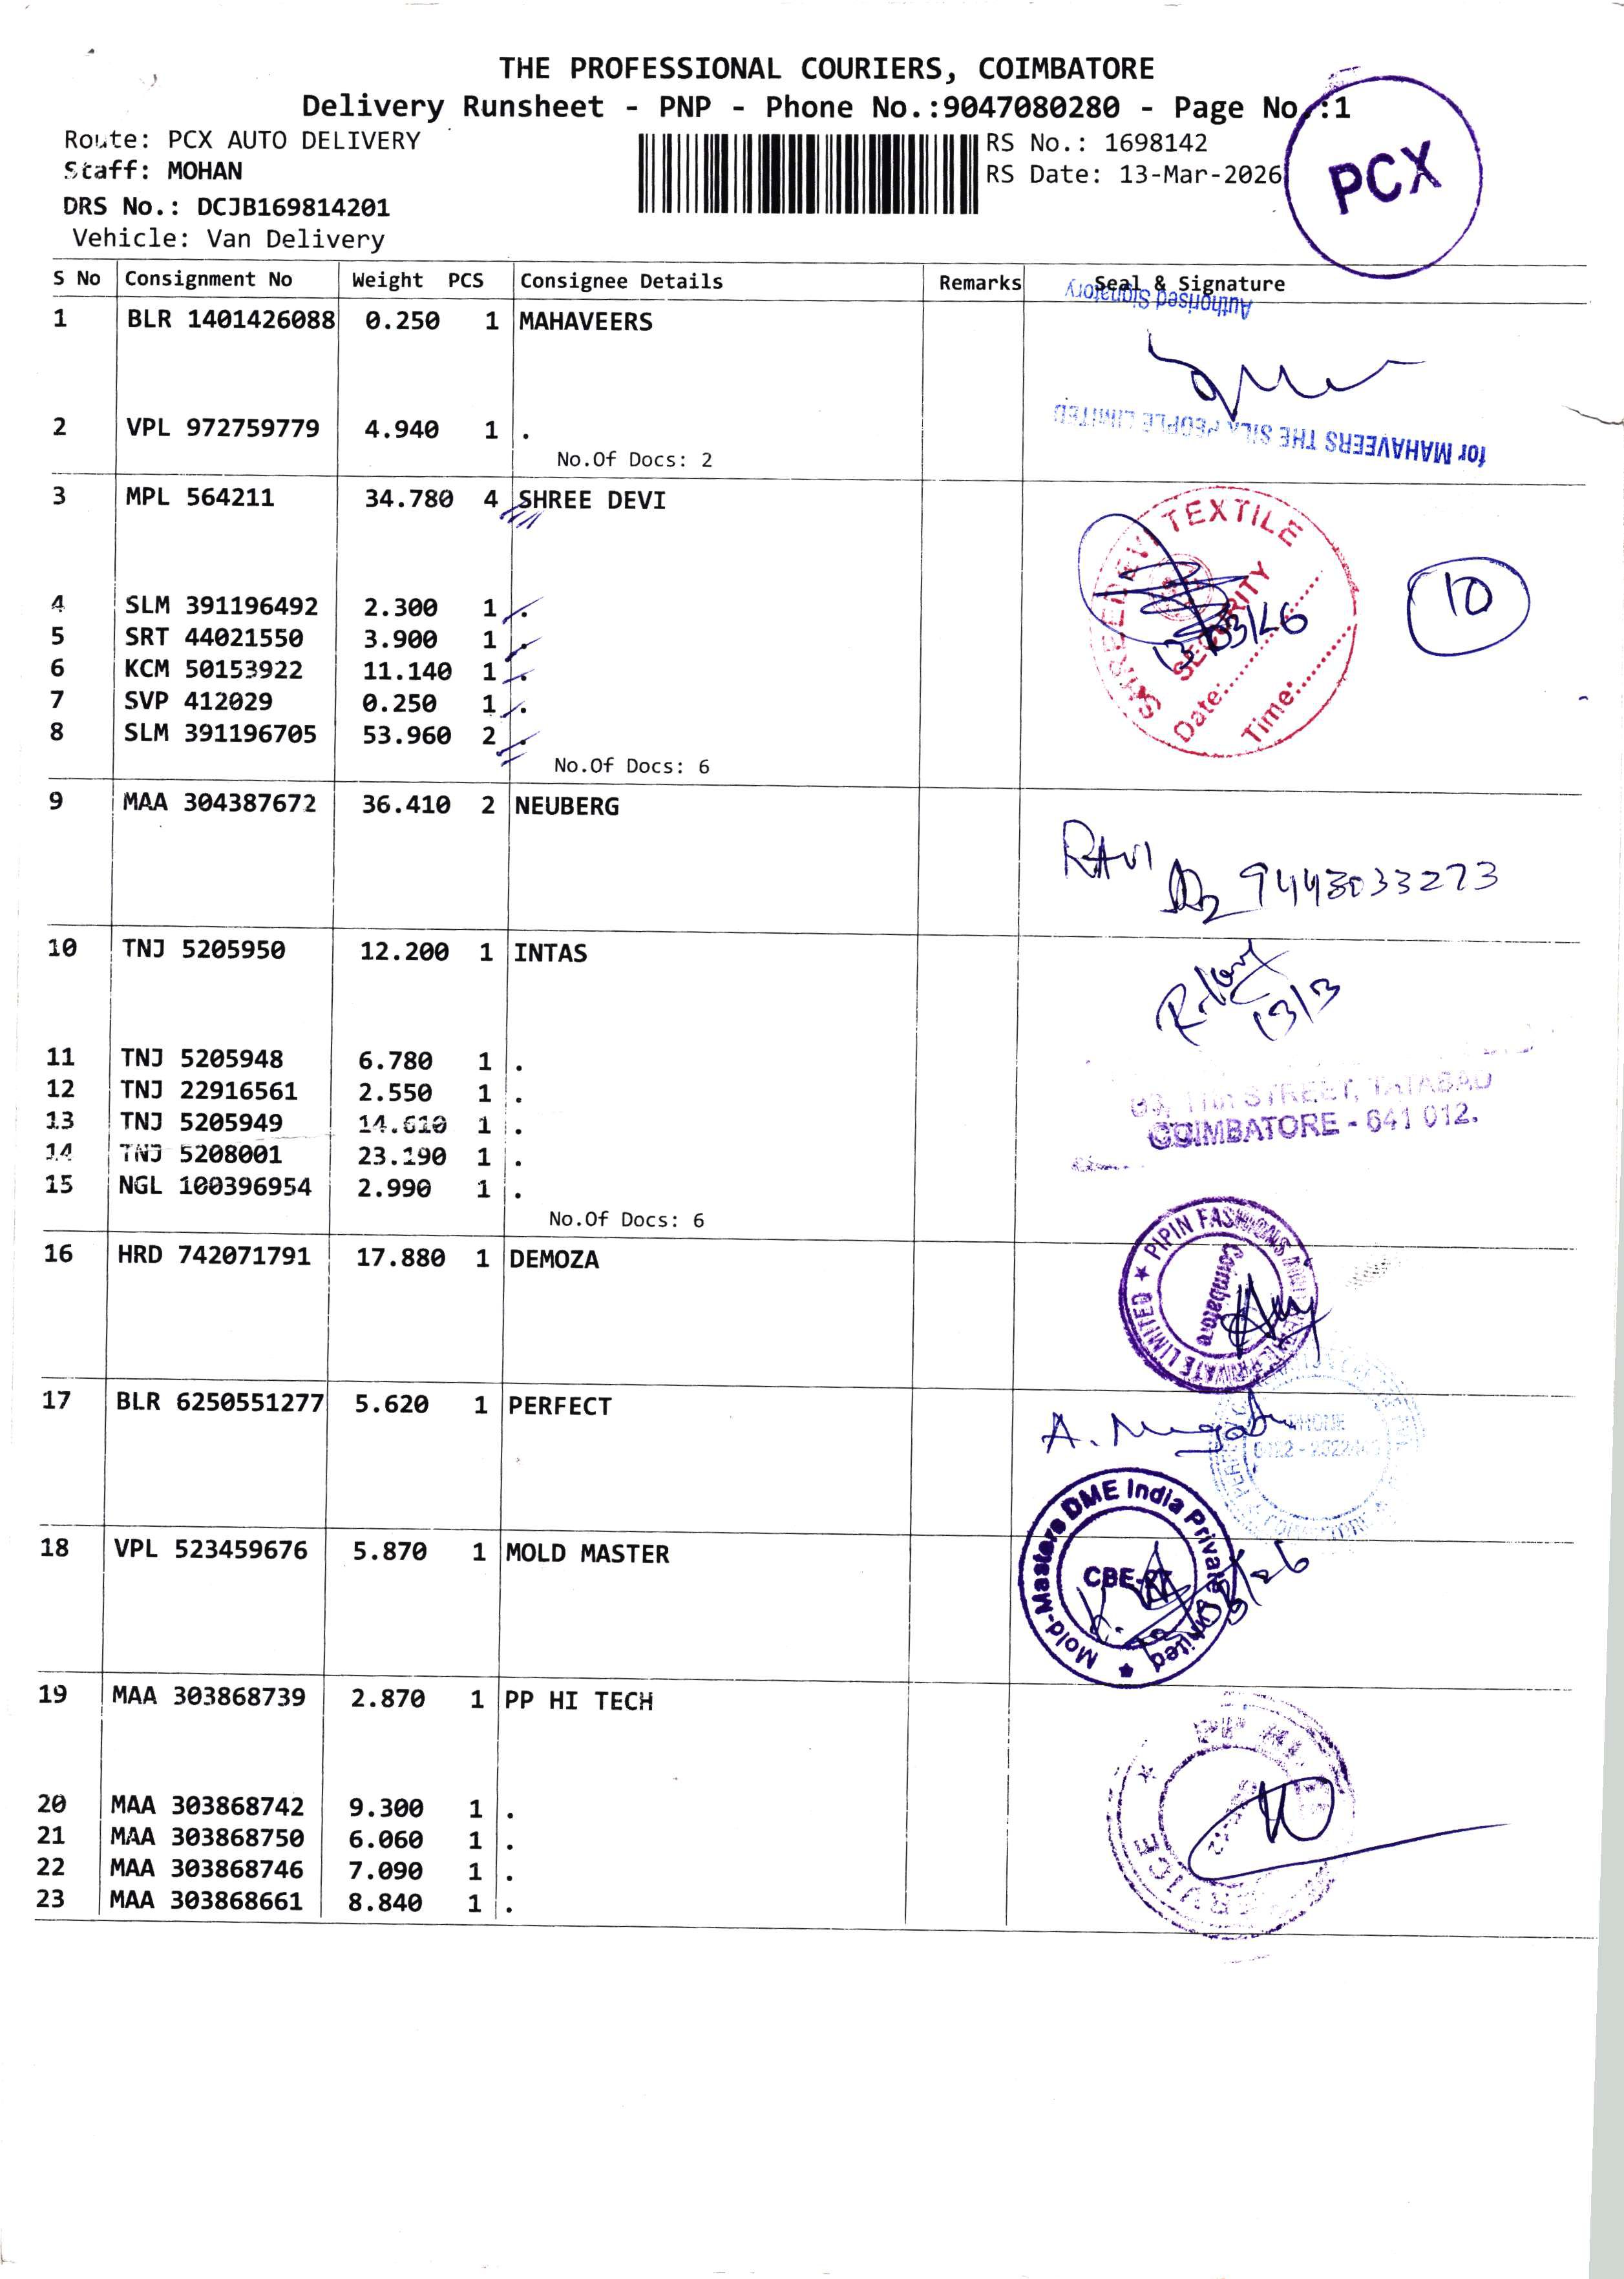 THE PROFESSIONAL COURIERS, COIMBATORE
Delivery Runsheet - PNP - Phone No.:9047080280 - Page No.:1
Route: PCX AUTO DELIVERY
Staff: MOHAN
DRS No.: DCJB169814201
Vehicle: Van Delivery
RS No.: 1698142
RS Date: 13-Mar-2026
PCX
S No Consignment No Weight PCS Consignee Details Remarks Seal & Signature
Authorised Signatory
1 BLR 1401426088 0.250 1 MAHAVEERS
2 VPL 972759779 4.940 1 .
for MAHAVEERS THE SILK PEOPLE LIMITED
No.Of Docs: 2
3 MPL 564211 34.780 4 SHREE DEVI
SHREE DEVI TEXTILE
SECURITY
Date:
Time:
13/03/26
10
4 SLM 391196492 2.300 1 .
5 SRT 44021550 3.900 1 .
6 KCM 50153922 11.140 1 .
7 SVP 412029 0.250 1 .
8 SLM 391196705 53.960 2 .
No.Of Docs: 6
9 MAA 304387672 36.410 2 NEUBERG
RAVI 9443033273
10 TNJ 5205950 12.200 1 INTAS
13/3
11 TNJ 5205948 6.780 1 .
12 TNJ 22916561 2.550 1 .
13 TNJ 5205949 14.610 1 .
14 TNJ 5208001 23.190 1 .
15 NGL 100396954 2.990 1 .
STREET, TATABAD
COIMBATORE - 641 012.
No.Of Docs: 6
16 HRD 742071791 17.880 1 DEMOZA
PIPIN FASHIONS PRIVATE LIMITED
Coimbatore
17 BLR 6250551277 5.620 1 PERFECT
A.
PHONE
18 VPL 523459676 5.870 1 MOLD MASTER
Mold-Masters DME India Private Limited
CBE
19 MAA 303868739 2.870 1 PP HI TECH
PP
SERVICE
20 MAA 303868742 9.300 1 .
21 MAA 303868750 6.060 1 .
22 MAA 303868746 7.090 1 .
23 MAA 303868661 8.840 1 .